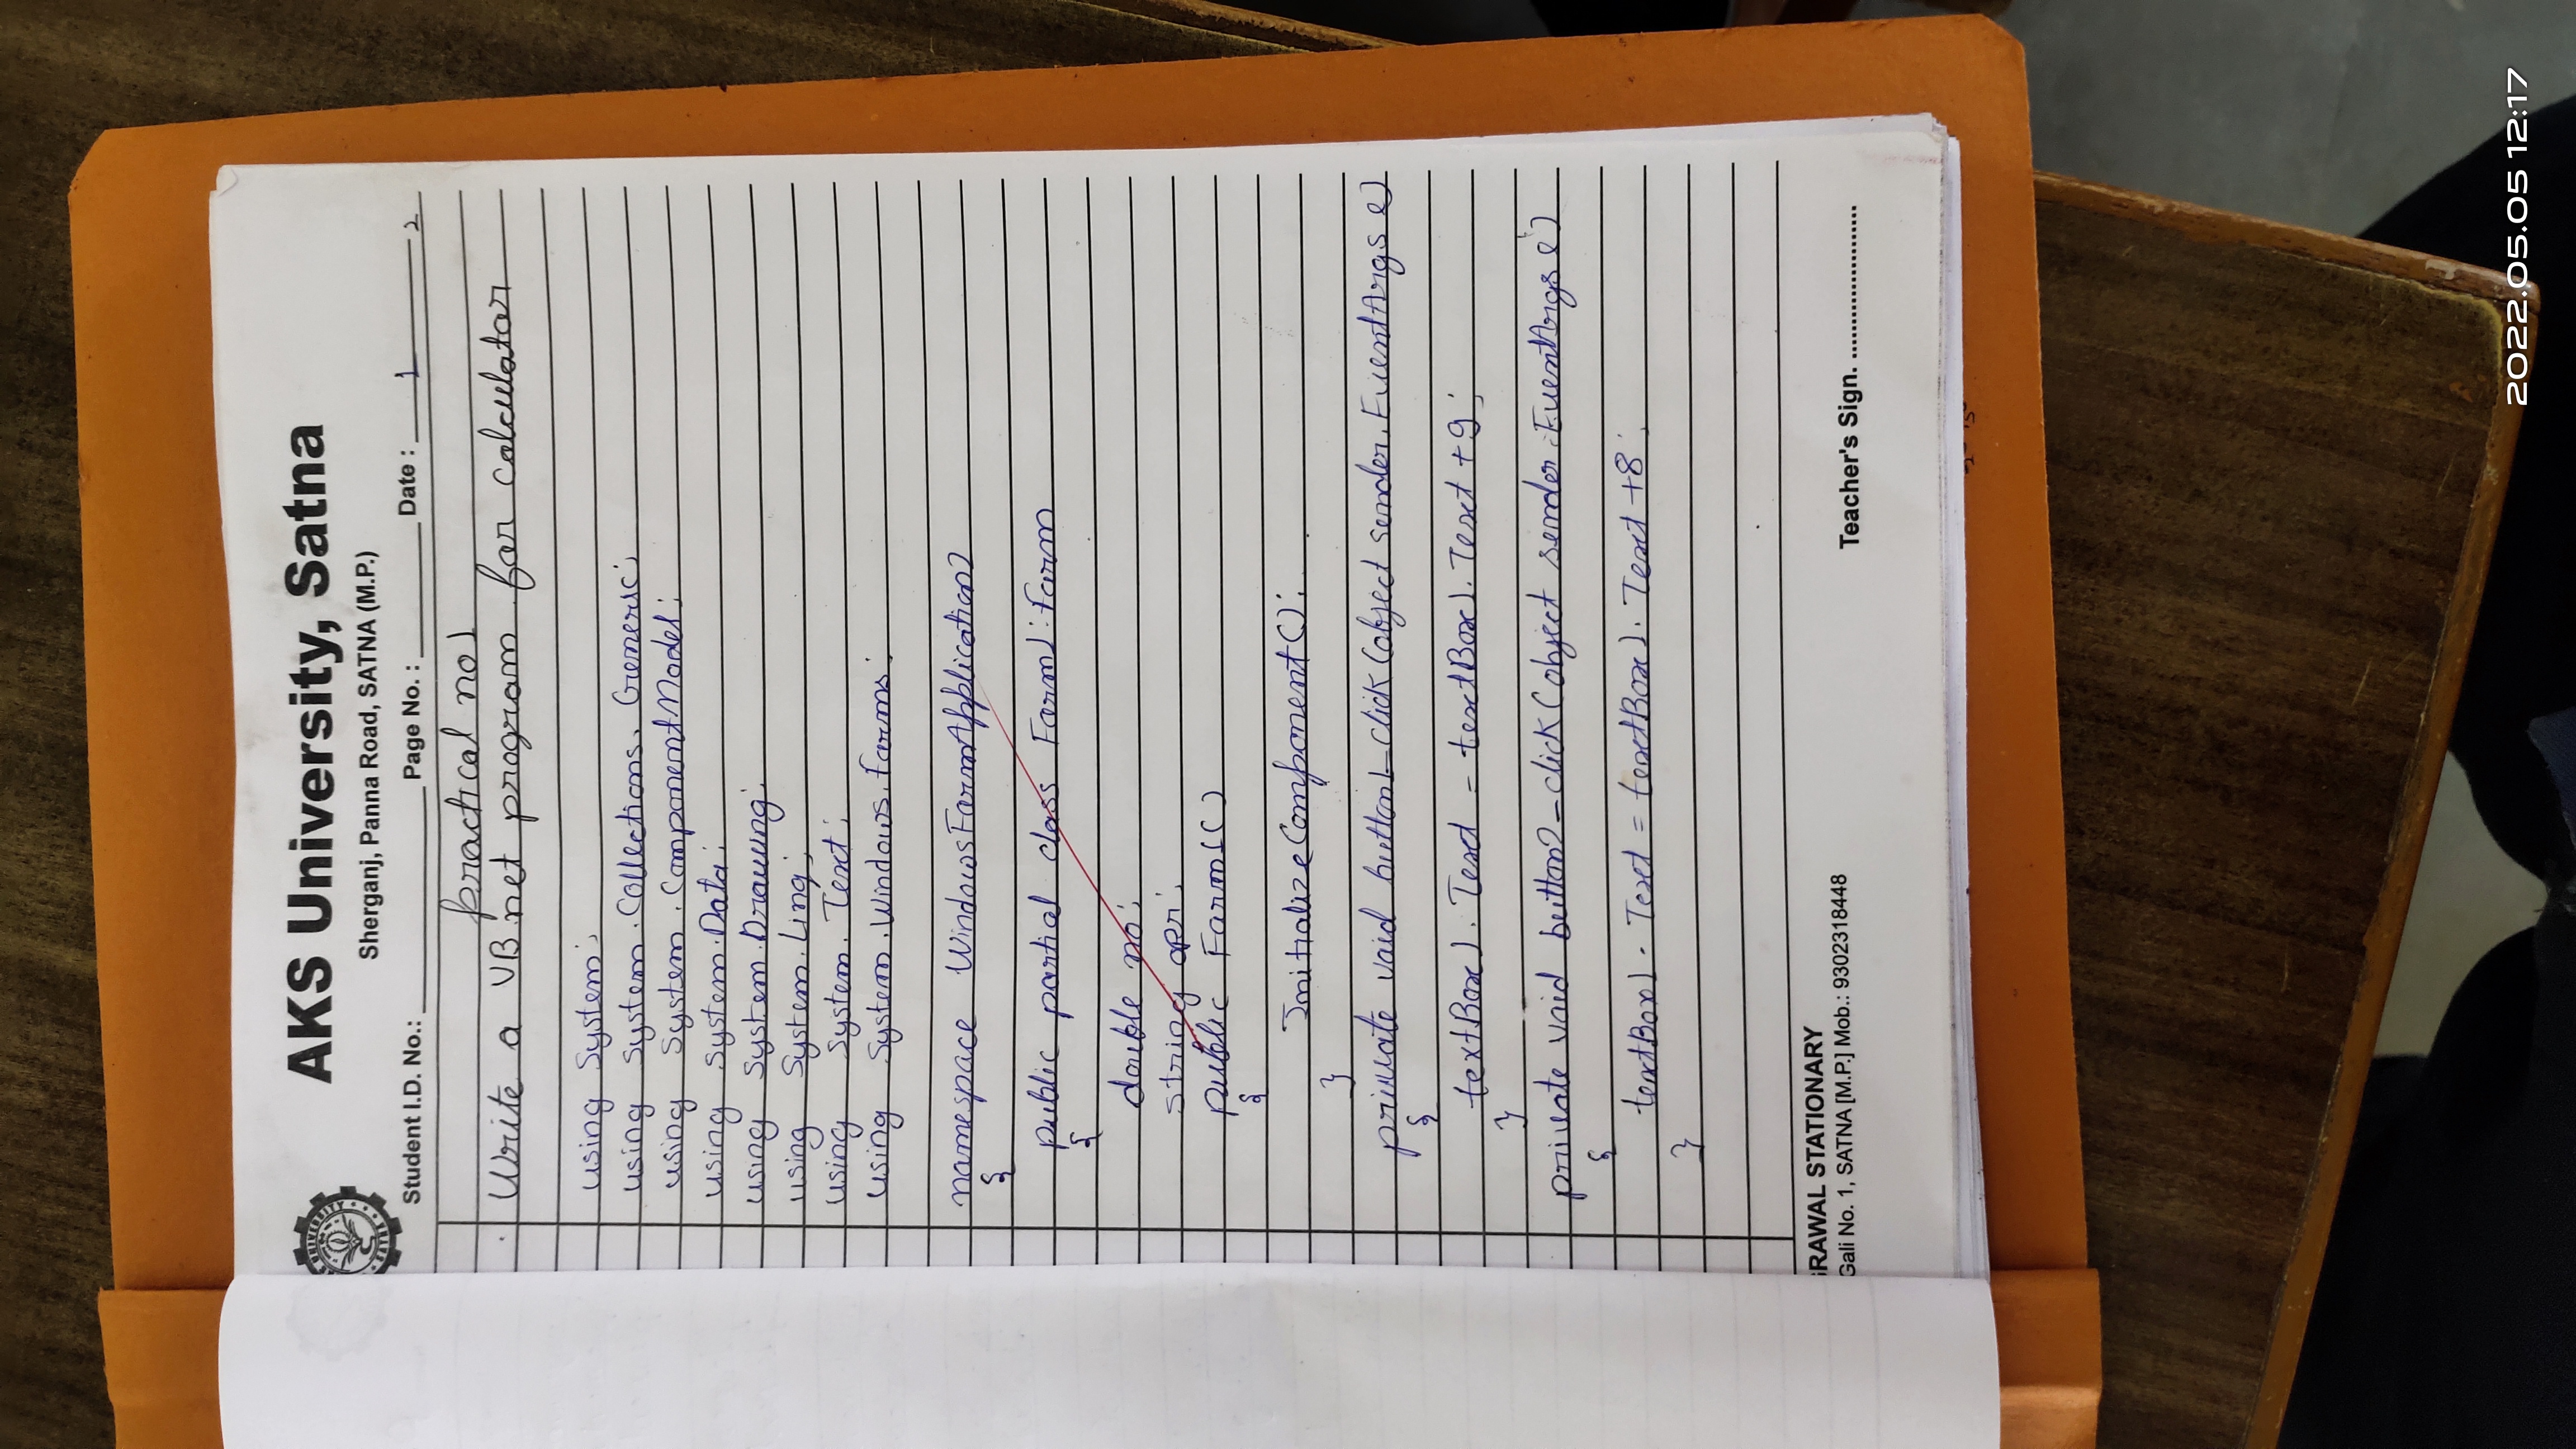 AKS University, Satna
Sherganj, Panna Road, SATNA (M.P.)
Student I.D. No.: Page No. : Date : 1 2
practical no 1
Write a VB.net program for calculator
using System;
using System.Collections.Generic;
using System.ComponentModel;
using System.Data;
using System.Drawing;
using System.Linq;
using System.Text;
using System.Windows.Forms;
namespace WindowsFormApplication2
{
public partial class Form1:form
{
double no;
string opr;
public Form1()
{
InitializeComponent();
}
private void button1_click(object sender,EventArgs e)
{
textBox1.Text = textBox1.Text +9;
}
private void button2_click(object sender,EventArgs e)
{
textBox1.Text = textBox1.Text +8;
}
RAWAL STATIONARY
Gali No. 1, SATNA [M.P.] Mob.: 9302318448
Teacher's Sign. ......................
2022.05.05 12:17